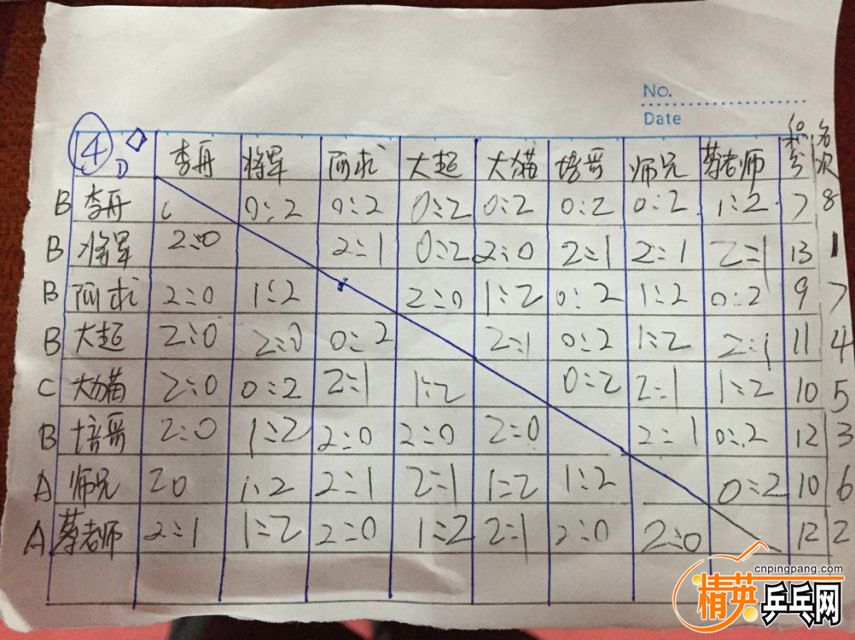 No.
Date
④ D 李丹 将军 阿求 大超 大猫 培哥 师兄 蔡老师 积分 名次
B 李丹 0:2 0:2 0:2 0:2 0:2 0:2 1:2 7 8
B 将军 2:0 2:1 0:2 2:0 2:1 2:1 2:1 13 1
B 阿求 2:0 1:2 2:0 1:2 0:2 1:2 0:2 9 7
B 大超 2:0 2:0 0:2 2:1 0:2 1:2 2:1 11 4
C 大猫 2:0 0:2 2:1 1:2 0:2 2:1 1:2 10 5
B 培哥 2:0 1:2 2:0 2:0 2:0 2:1 0:2 12 3
A 师兄 20 1:2 2:1 2:1 1:2 1:2 0:2 10 6
A 蔡老师 2:1 1:2 2:0 1:2 2:1 2:0 2:0 12 2
cnpingpang.com
精英乒乓网